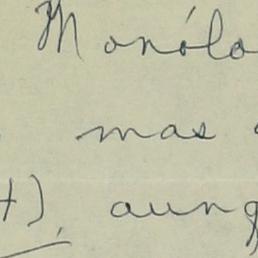 Monólo
mas
t), aunq